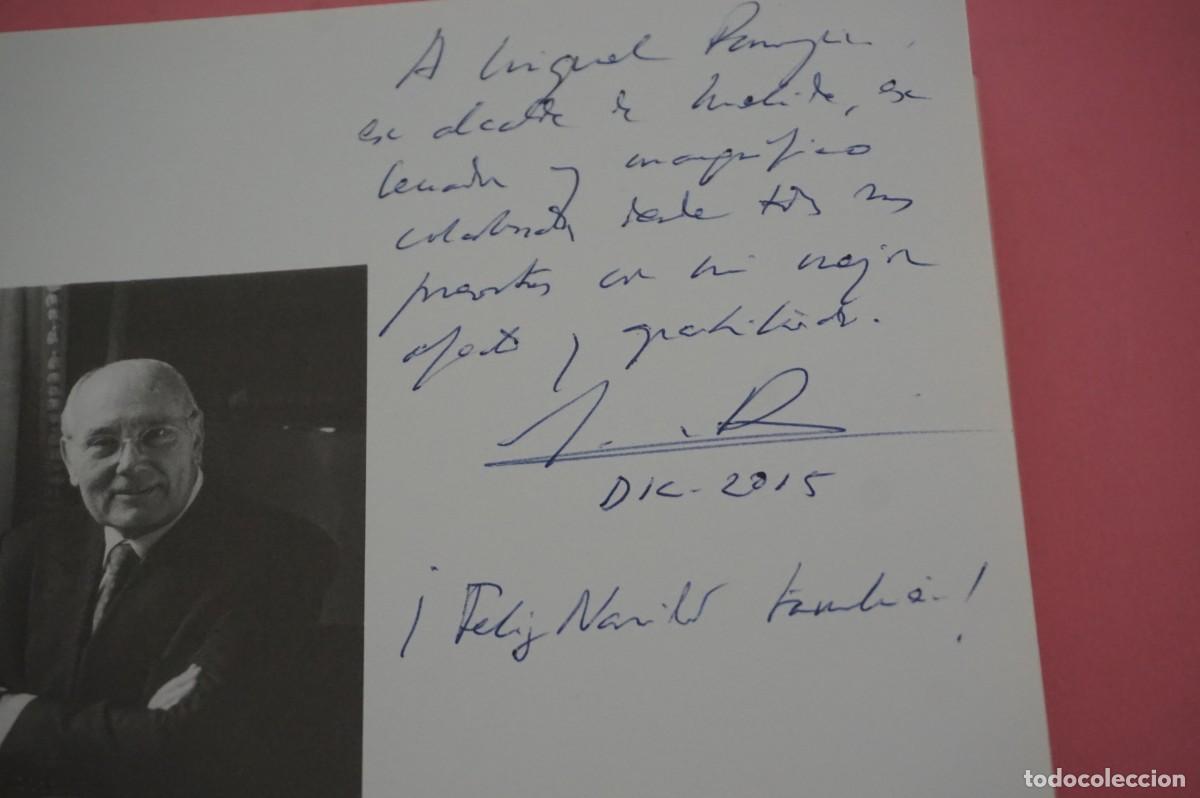 A Miguel
ex alcalde de Melilla, ex
senador y magnífico
colaborador desde todos sus
puestos con mi mejor
afecto y gratitud.
DIC-2015
¡Feliz Navidad también!
todocoleccion